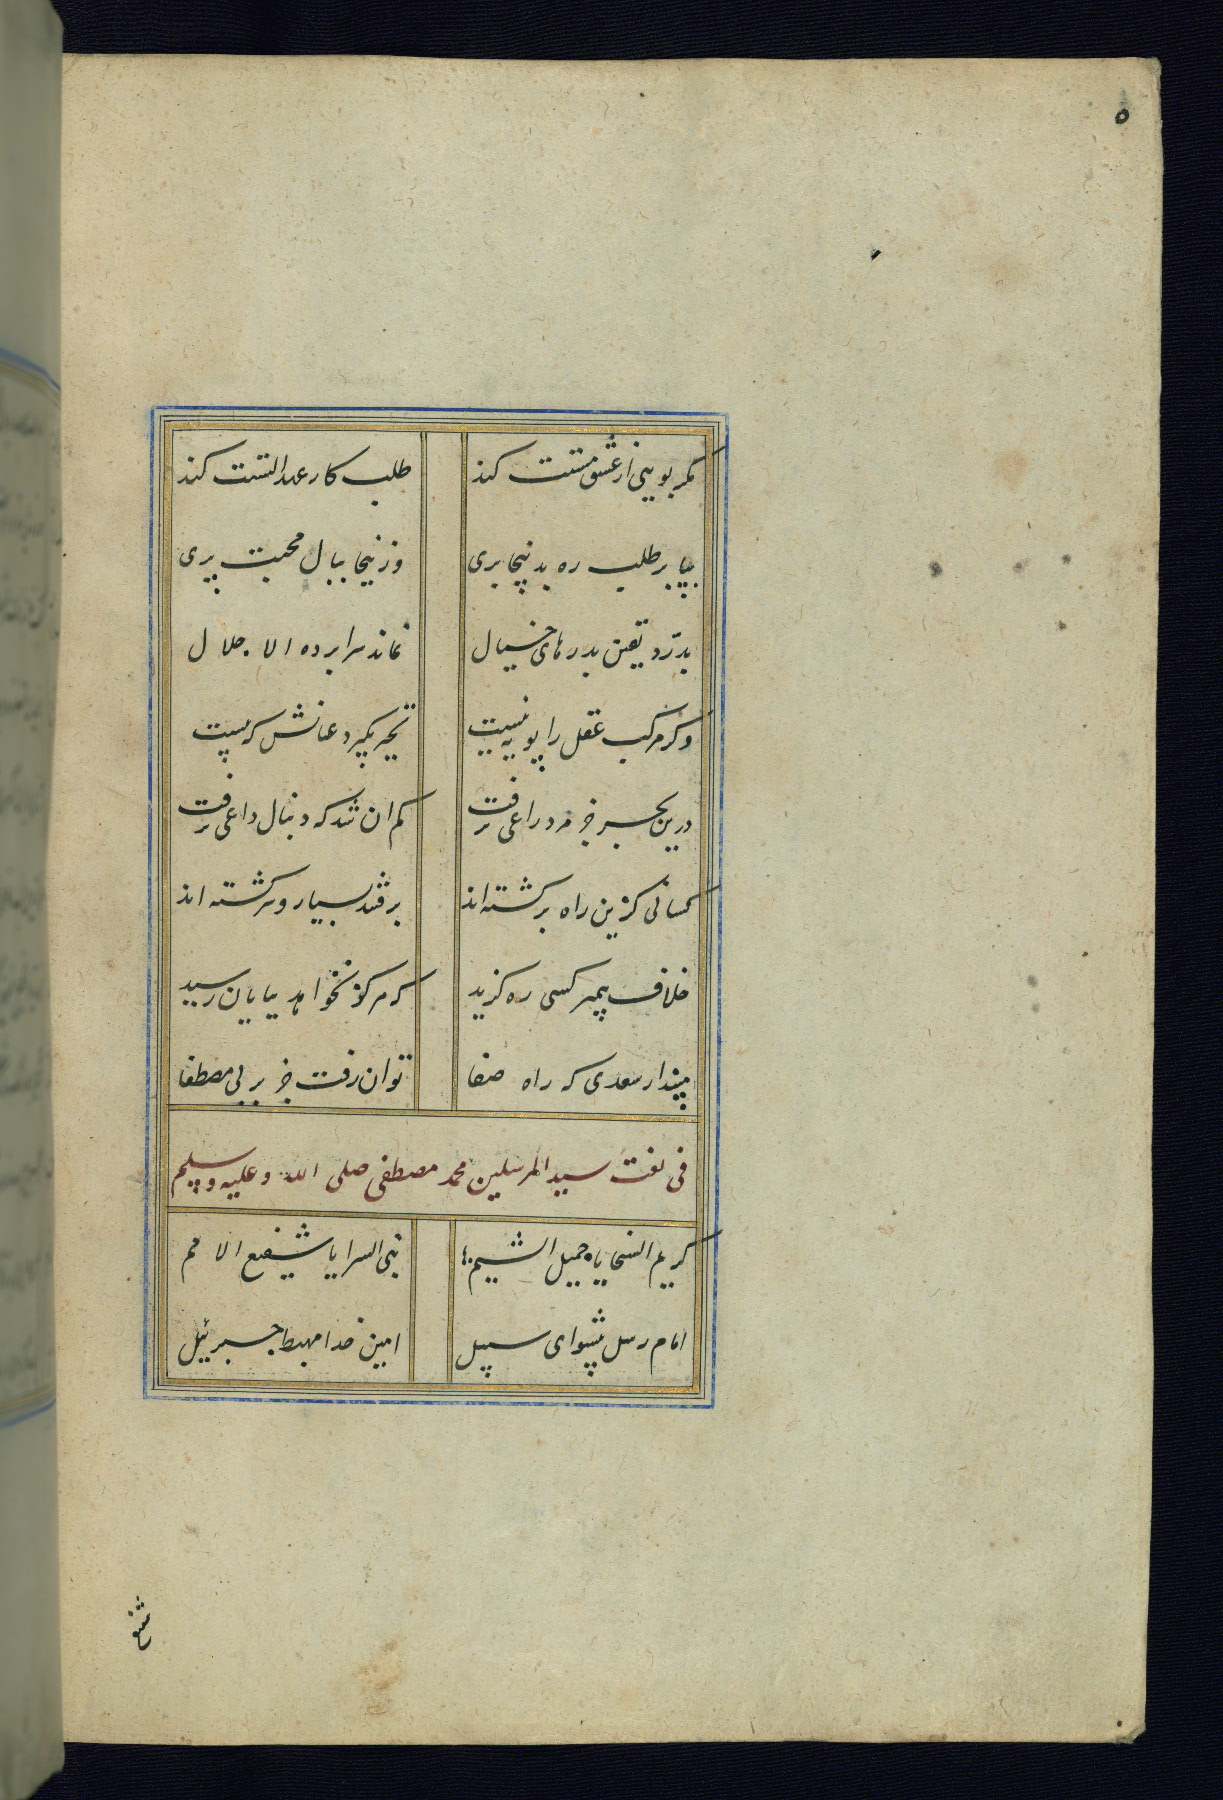 ۵
مگر بویی از عشق مستت کند طلب کار عهد الستت کند
بپای طلب ره بدنیجا بری وزنیجا ببال محبت پری
بدرّد یقین پدرهای خیال نماند سرابرده الا جلال
وگر مرکب عقل را پویه نیست تحیر بگیرد عنانش که بیست
درین بحر جز مرد راعی نرفت کم ان شد که دنبال داعی نرفت
کسانی کزین راه برگشته اند برفتند بسیار و سرگشته اند
خلاف پیمبر کسی ره گزید که هرگز نخواهد بپایان رسید
مپندار سعدی که راه صفا توان رفت جز بر پی مصطفا
فی نعت سید المرسلین محمد مصطفی صلی الله و علیه و سلیم
کریم السجایاه جمیل الشیم نبی السرایا شفیع الامم
امام رسل پیشوای سبیل امین خدا مهبط جبرئیل
شفیع